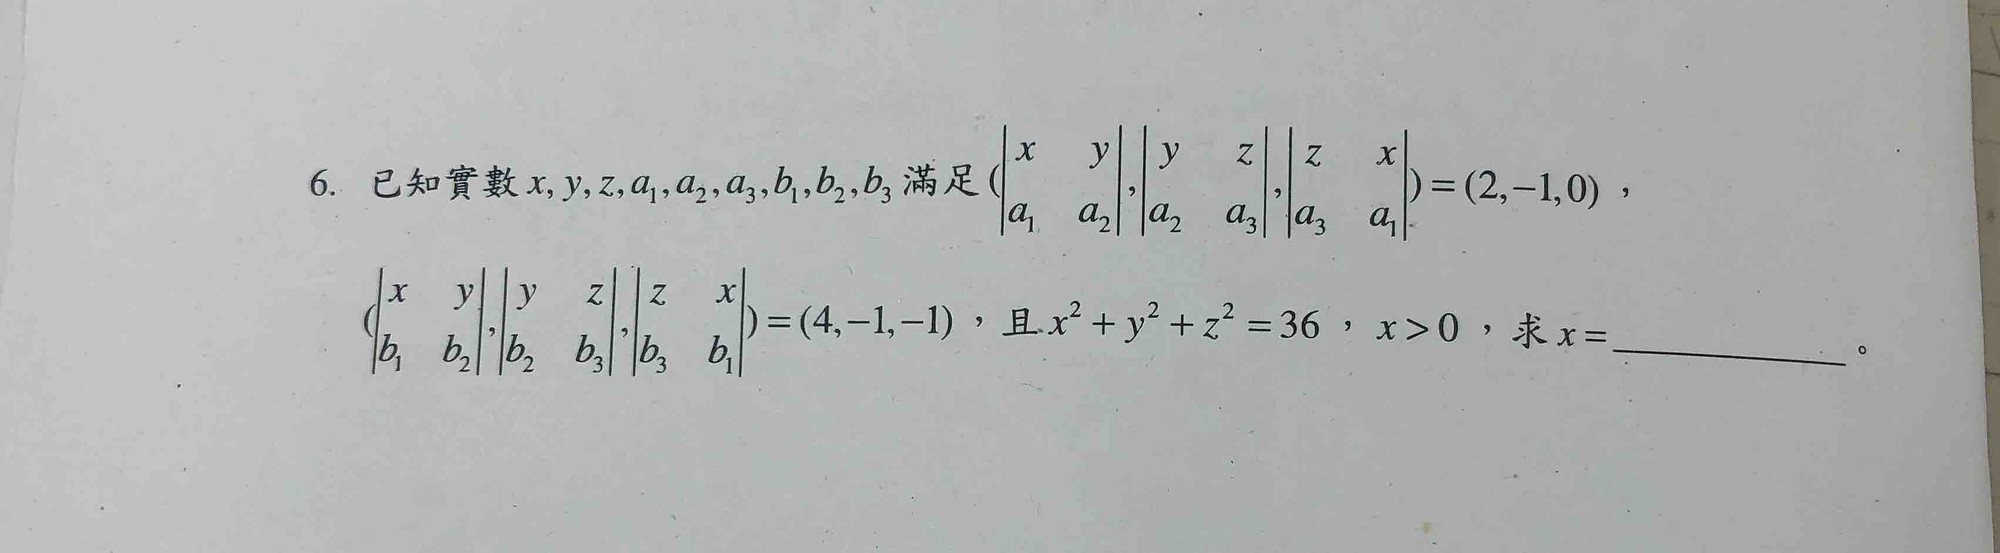 6. 已知實數 x, y, z, a₁, a₂, a₃, b₁, b₂, b₃ 滿足 (|x y; a₁ a₂|, |y z; a₂ a₃|, |z x; a₃ a₁|) = (2, −1, 0)，
(|x y; b₁ b₂|, |y z; b₂ b₃|, |z x; b₃ b₁|) = (4, −1, −1)，且 x² + y² + z² = 36，x > 0，求 x = ________。